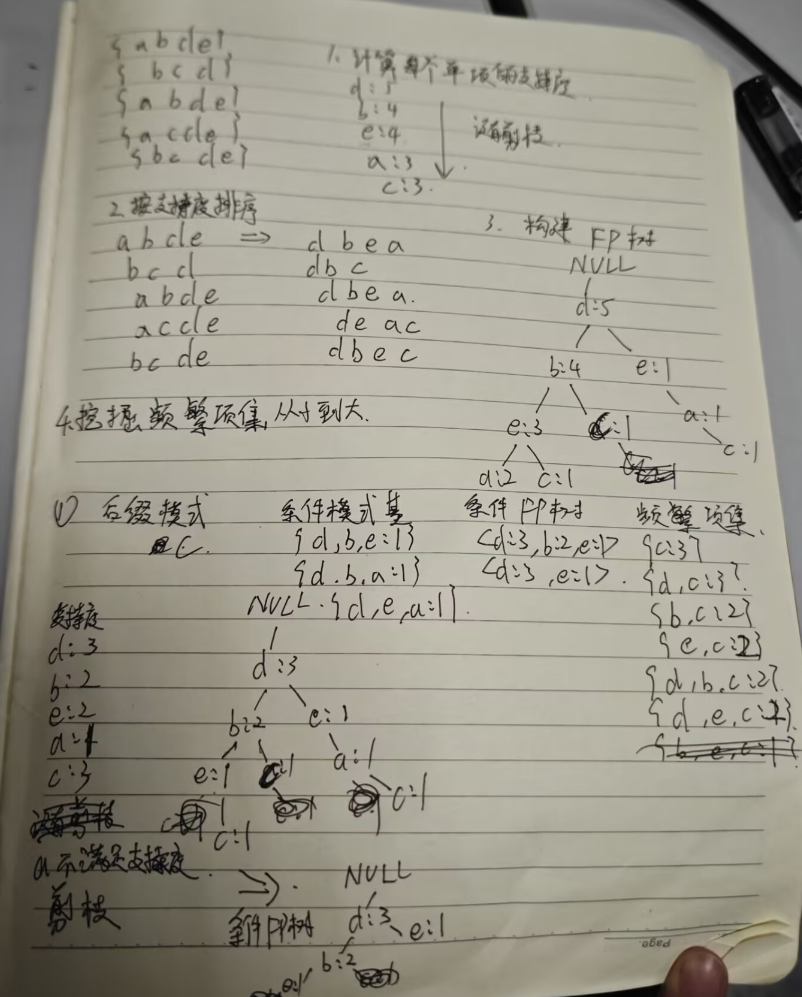 {a b c d e}
{ b c d }
{a b d e}
{a c d e}
{b c d e}
1. 计算每个单项的支持度
d:5
b:4
e:4
a:3
c:3.
没有剪枝.
2. 按支持度排序
a b c d e ⇒ d b e a
b c d d b c
a b d e d b e a.
a c d e d e a c
b c d e d b e c
3. 构建 FP树
NULL
d:5
b:4 e:1
e:3 c:1 a:1
a:2 c:1 c:1
4. 挖掘频繁项集, 从小到大.
① 后缀模式 条件模式基 条件FP树 频繁项集.
C. {d,b,e:1} <d:3,b:2,e:1> {c:3}
{d.b,a:1} <d:3,e:1>. {d,c:3}
{d,e,a:1}. {b,c:2}
{e,c:2}
{d,b,c:2}
{d,e,c:2}
{b,e,c:1}
支持度
d:3
b:2
e:2
a:1
c:3
a不满足支持度.
剪枝
NULL
d:3
b:2 e:1
e:1 c:1 a:1
c:1 c:1
⇒.
条件FP树
NULL
d:3 e:1
b:2
e:1
Page